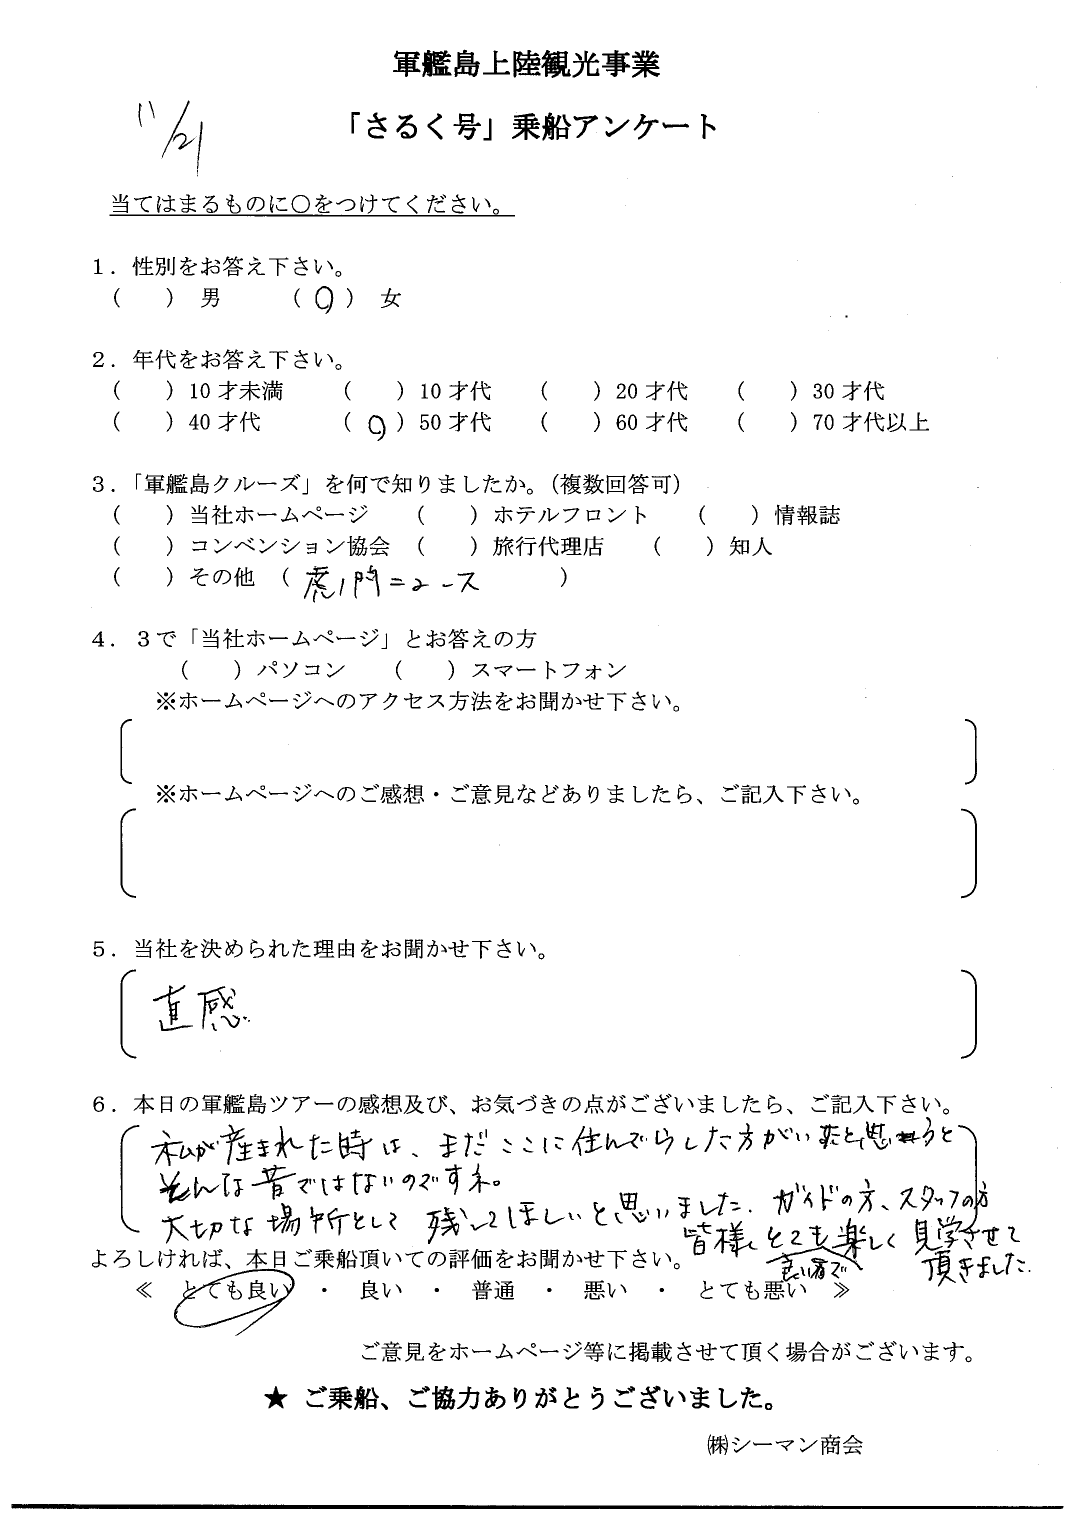 軍艦島上陸観光事業
「さるく号」乗船アンケート
11/21
当てはまるものに○をつけてください。
１．性別をお答え下さい。
（　　）男　　（○）女
２．年代をお答え下さい。
（　　）10才未満　（　　）10才代　（　　）20才代　（　　）30才代
（　　）40才代　（○）50才代　（　　）60才代　（　　）70才代以上
３．「軍艦島クルーズ」を何で知りましたか。（複数回答可）
（　　）当社ホームページ　（　　）ホテルフロント　（　　）情報誌
（　　）コンベンション協会　（　　）旅行代理店　（　　）知人
（　　）その他　（虎ノ門ニュース　　）
４．３で「当社ホームページ」とお答えの方
（　　）パソコン　（　　）スマートフォン
※ホームページへのアクセス方法をお聞かせ下さい。
※ホームページへのご感想・ご意見などありましたら、ご記入下さい。
５．当社を決められた理由をお聞かせ下さい。
直感
６．本日の軍艦島ツアーの感想及び、お気づきの点がございましたら、ご記入下さい。
私が産まれた時は、まだここに住んでらした方がいたと思うと
そんな昔ではないのですネ。
大切な場所として残してほしいと思いました。ガイドの方、スタッフの方
皆様とても良い方で楽しく見学させて
頂きました。
よろしければ、本日ご乗船頂いての評価をお聞かせ下さい。
≪　とても良い　・　良い　・　普通　・　悪い　・　とても悪い　≫
ご意見をホームページ等に掲載させて頂く場合がございます。
★ ご乗船、ご協力ありがとうございました。
㈱シーマン商会